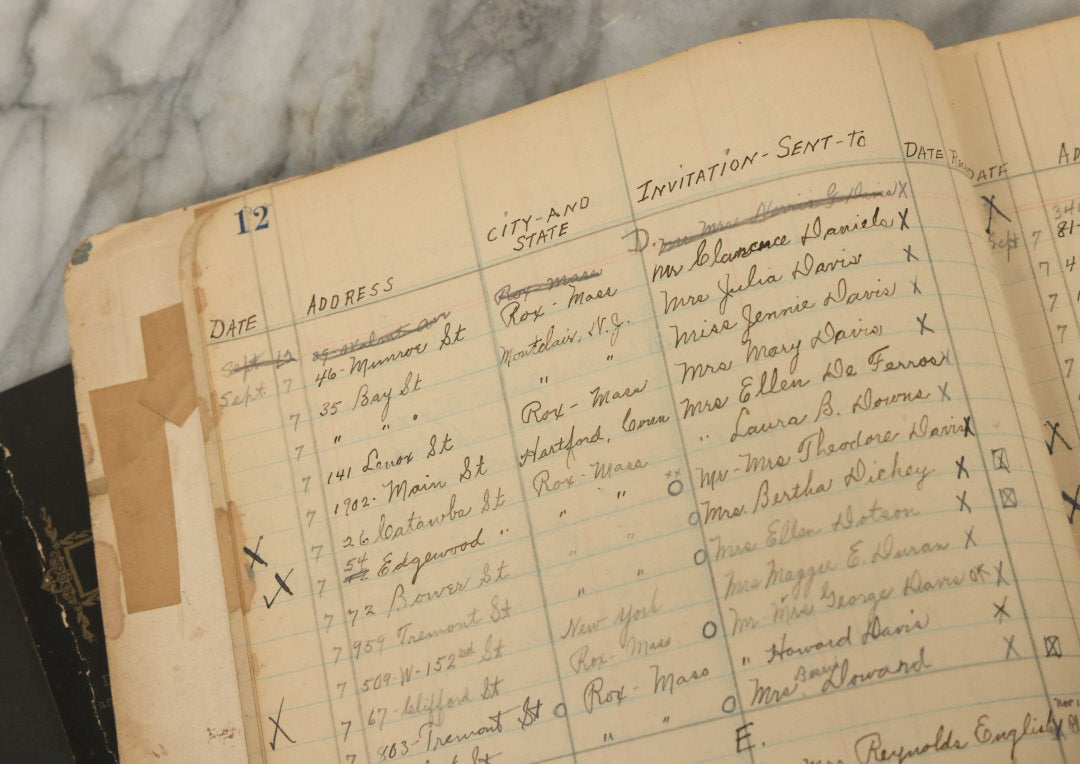 12
DATE ADDRESS CITY-AND STATE INVITATION-SENT-TO DATE
Sept 12 Rox-Mass D. Mr Mrs Norris G Davis X
Sept 7 46-Munroe St Rox-Mass Mr Clarence Daniels X
7 35 Bay St Montclair, N.J. Mrs Julia Davis X
7 " " " " Miss Jennie Davis X
7 141 Lenox St Rox-Mass Mrs Mary Davis X
7 1902-Main St Hartford, Conn Mrs Ellen De Ferros X
X 7 26 Catawba St Rox-Mass " Laura B. Downs X
7 54 Edgewood " " " Mr-Mrs Theodore Davis X
7 72 Bower St " Mrs. Bertha Dickey X
7 959 Tremont St " " Mrs Ellen Dotson X
7 509-W-152nd St New York Mrs Maggie E. Duran X
X 7 67-Clifford St Rox-Mass Mr-Mrs George Davis ok X
7 803-Tremont St Rox-Mass " Howard Davis X
St " " Mrs Doward X
E.
Reynolds English
DATE AD
X 34
Sept 7 81-
7 4
7
7
7